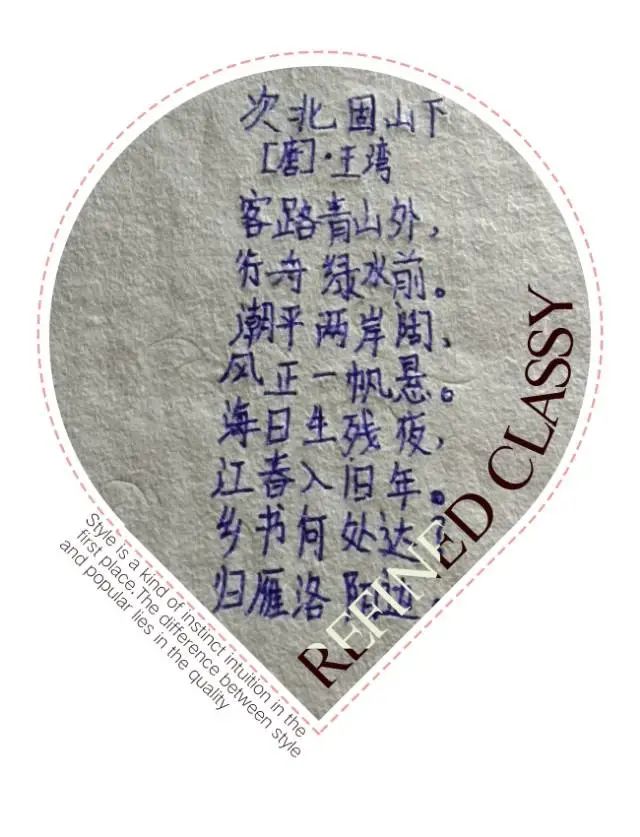 次北固山下
[唐]·王湾
客路青山外，
行舟绿水前。
潮平两岸阔，
风正一帆悬。
海日生残夜，
江春入旧年。
乡书何处达？
归雁洛阳边。
REFINED CLASSY
Style is a kind of instinct intuition in the
first place.The difference between style
and popular lies in the quality